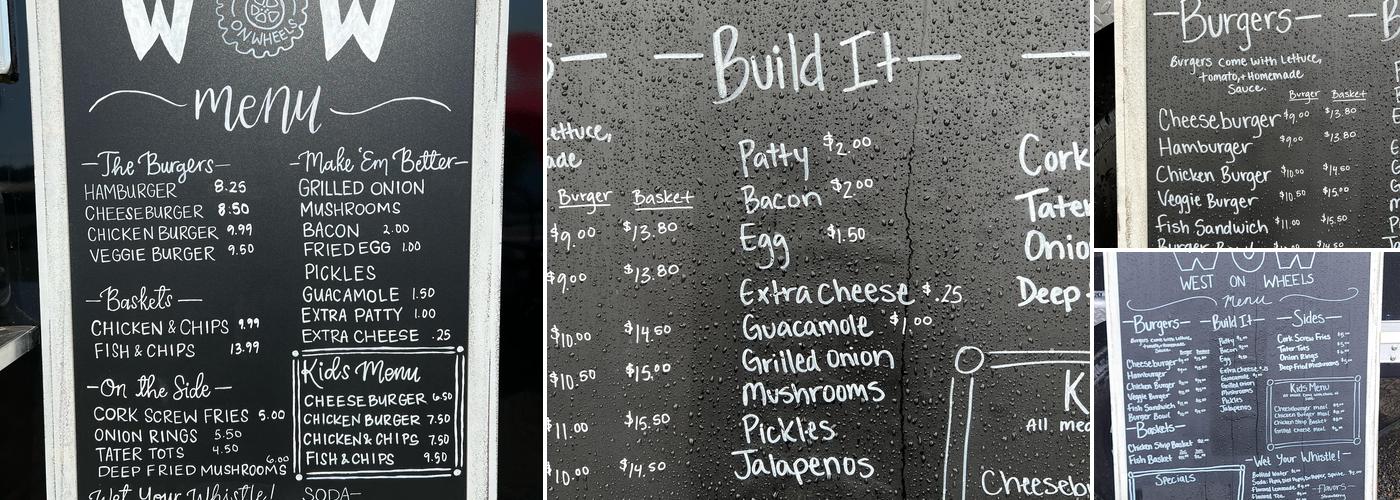 W W
ON WHEELS
menu
The Burgers
HAMBURGER 8.25
CHEESEBURGER 8.50
CHICKEN BURGER 9.99
VEGGIE BURGER 9.50
Baskets
CHICKEN & CHIPS 9.99
FISH & CHIPS 13.99
On the Side
CORK SCREW FRIES 5.00
ONION RINGS 5.50
TATER TOTS 4.50
DEEP FRIED MUSHROOMS 6.00
Wet Your Whistle!
Make 'Em Better
GRILLED ONION
MUSHROOMS
BACON 2.00
FRIED EGG 1.00
PICKLES
GUACAMOLE 1.50
EXTRA PATTY 1.00
EXTRA CHEESE .25
Kids Menu
CHEESEBURGER 6.50
CHICKEN BURGER 7.50
CHICKEN & CHIPS 7.50
FISH & CHIPS 9.50
SODA
s
Lettuce,
ade
Burger Basket
$9.00 $13.80
$9.00 $13.80
$10.00 $14.50
$10.50 $15.00
$11.00 $15.50
$10.00 $14.50
Build It
Patty $2.00
Bacon $2.00
Egg $1.50
Extra cheese $.25
Guacamole $1.00
Grilled Onion
Mushrooms
Pickles
Jalapenos
Cork
Tater
Onion
Deep
K
All mea
Cheeseb
Burgers
Burgers come with Lettuce,
tomato, + Homemade
Sauce.
Burger Basket
Cheeseburger $9.00 $13.80
Hamburger $9.00 $13.80
Chicken Burger $10.00 $14.50
Veggie Burger $10.50 $15.00
Fish Sandwich $11.00 $15.50
Burger Bowl $10.00 $14.50
WOW
WEST ON WHEELS
menu
Burgers
Burgers come with Lettuce,
tomato, + Homemade
Sauce.
Cheeseburger
Hamburger
Chicken Burger
Veggie Burger
Fish Sandwich
Burger Bowl
Baskets
Chicken Strip Basket
Fish Basket
Specials
Build It
Patty
Bacon
Egg
Extra cheese
Guacamole
Grilled Onion
Mushrooms
Pickles
Jalapenos
Sides
Cork Screw Fries
Tater Tots
Onion Rings
Deep Fried Mushrooms
Kids Menu
Cheeseburger meal
Chicken Burger meal
Chicken Strip meal
Grilled cheese meal
Wet Your Whistle!
Bottled Water
Flavored Lemonade
Flavors